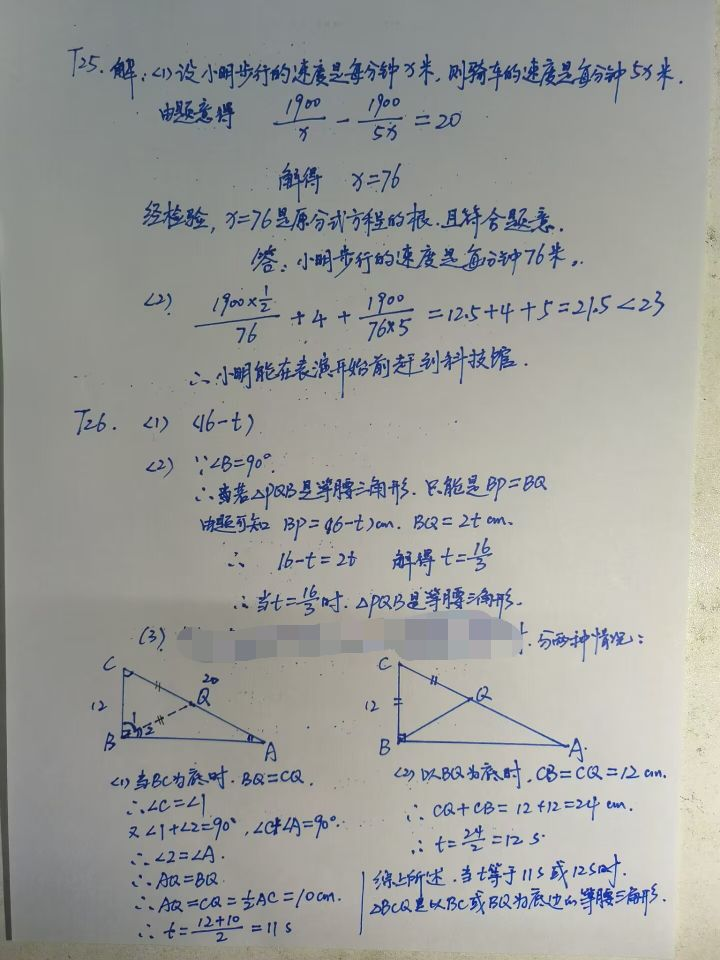 T25. 解：(1)设小明步行的速度是每分钟x米，则骑车的速度是每分钟5x米．
由题意得 1900/x - 1900/5x = 20
解得 x=76
经检验，x=76是原分式方程的根．且符合题意．
答：小明步行的速度是每分钟76米．
(2) (1900×1/2)/76 + 4 + 1900/(76×5) = 12.5+4+5=21.5<23
∴小明能在表演开始前赶到科技馆．
T26. (1) (16-t)
(2) ∵∠B=90°
∴若△PQB是等腰三角形．只能是BP=BQ
由题可知 BP=(16-t)cm. BQ=2t cm.
∴ 16-t=2t 解得 t=16/3
∴当t=16/3时．△PQB是等腰三角形．
(3) 分两种情况：
C
12
B
1
2
Q
20
A
C
12
B
Q
A
(1)当BC为底时．BQ=CQ．
∴∠C=∠1
又∠1+∠2=90°，∠C+∠A=90°．
∴∠2=∠A．
∴AQ=BQ
∴AQ=CQ=1/2AC=10cm．
∴t=(12+10)/2=11s
(2)以BQ为底时．CB=CQ=12cm．
∴CQ+CB=12+12=24 cm．
∴t=24/2=12 s．
综上所述．当t等于11s或12s时．
△BCQ是以BC或BQ为底边的等腰三角形．